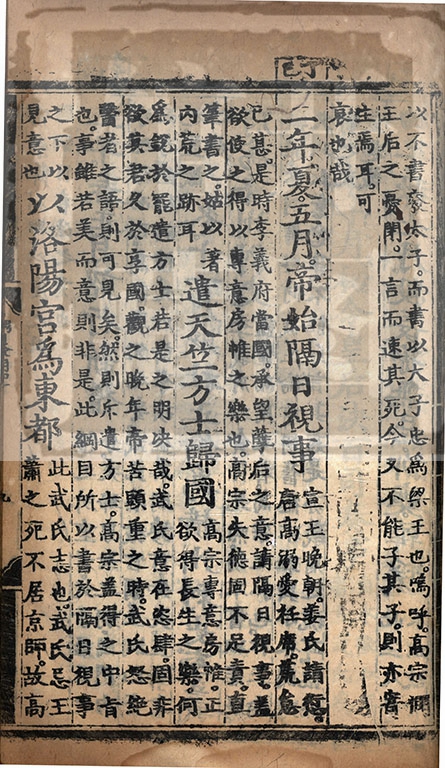 丁巳
以不書廢太子。而書以太子忠爲梁王也。嗚呼。高宗憫
王后之憂閑。一言而速其死。今又不能子其子。則亦寄
生焉耳。可
哀也哉
二年夏五月。帝始隔日視事
宣王晚朝。姜氏請愆。
唐高溺愛衽席。荒怠
已甚。是時李義府當國。承皇孽后之意。請隔日視事。蓋
欲使之得以專意房帷之樂也。高宗失德固不足責。直
筆書之。姑以著
內荒之跡耳
遣天竺方士歸國
高宗專意房帷。正
欲得長生之藥。何
爲說於罷遣方士。若是之明决哉。武氏意在恣肆。固非
欲其君久於享國。觀之晚年帝苦頭重之時。武氏怒絶
醫者之語。則可見矣。然則斥遣方士。高宗蓋得之中旨
也。事雖若美而意則非是。此綱目所以書於隔日視事
之下以
見意也
以洛陽宮爲東都
此武氏志也。武氏忌王
蕭之死不居京師。故高